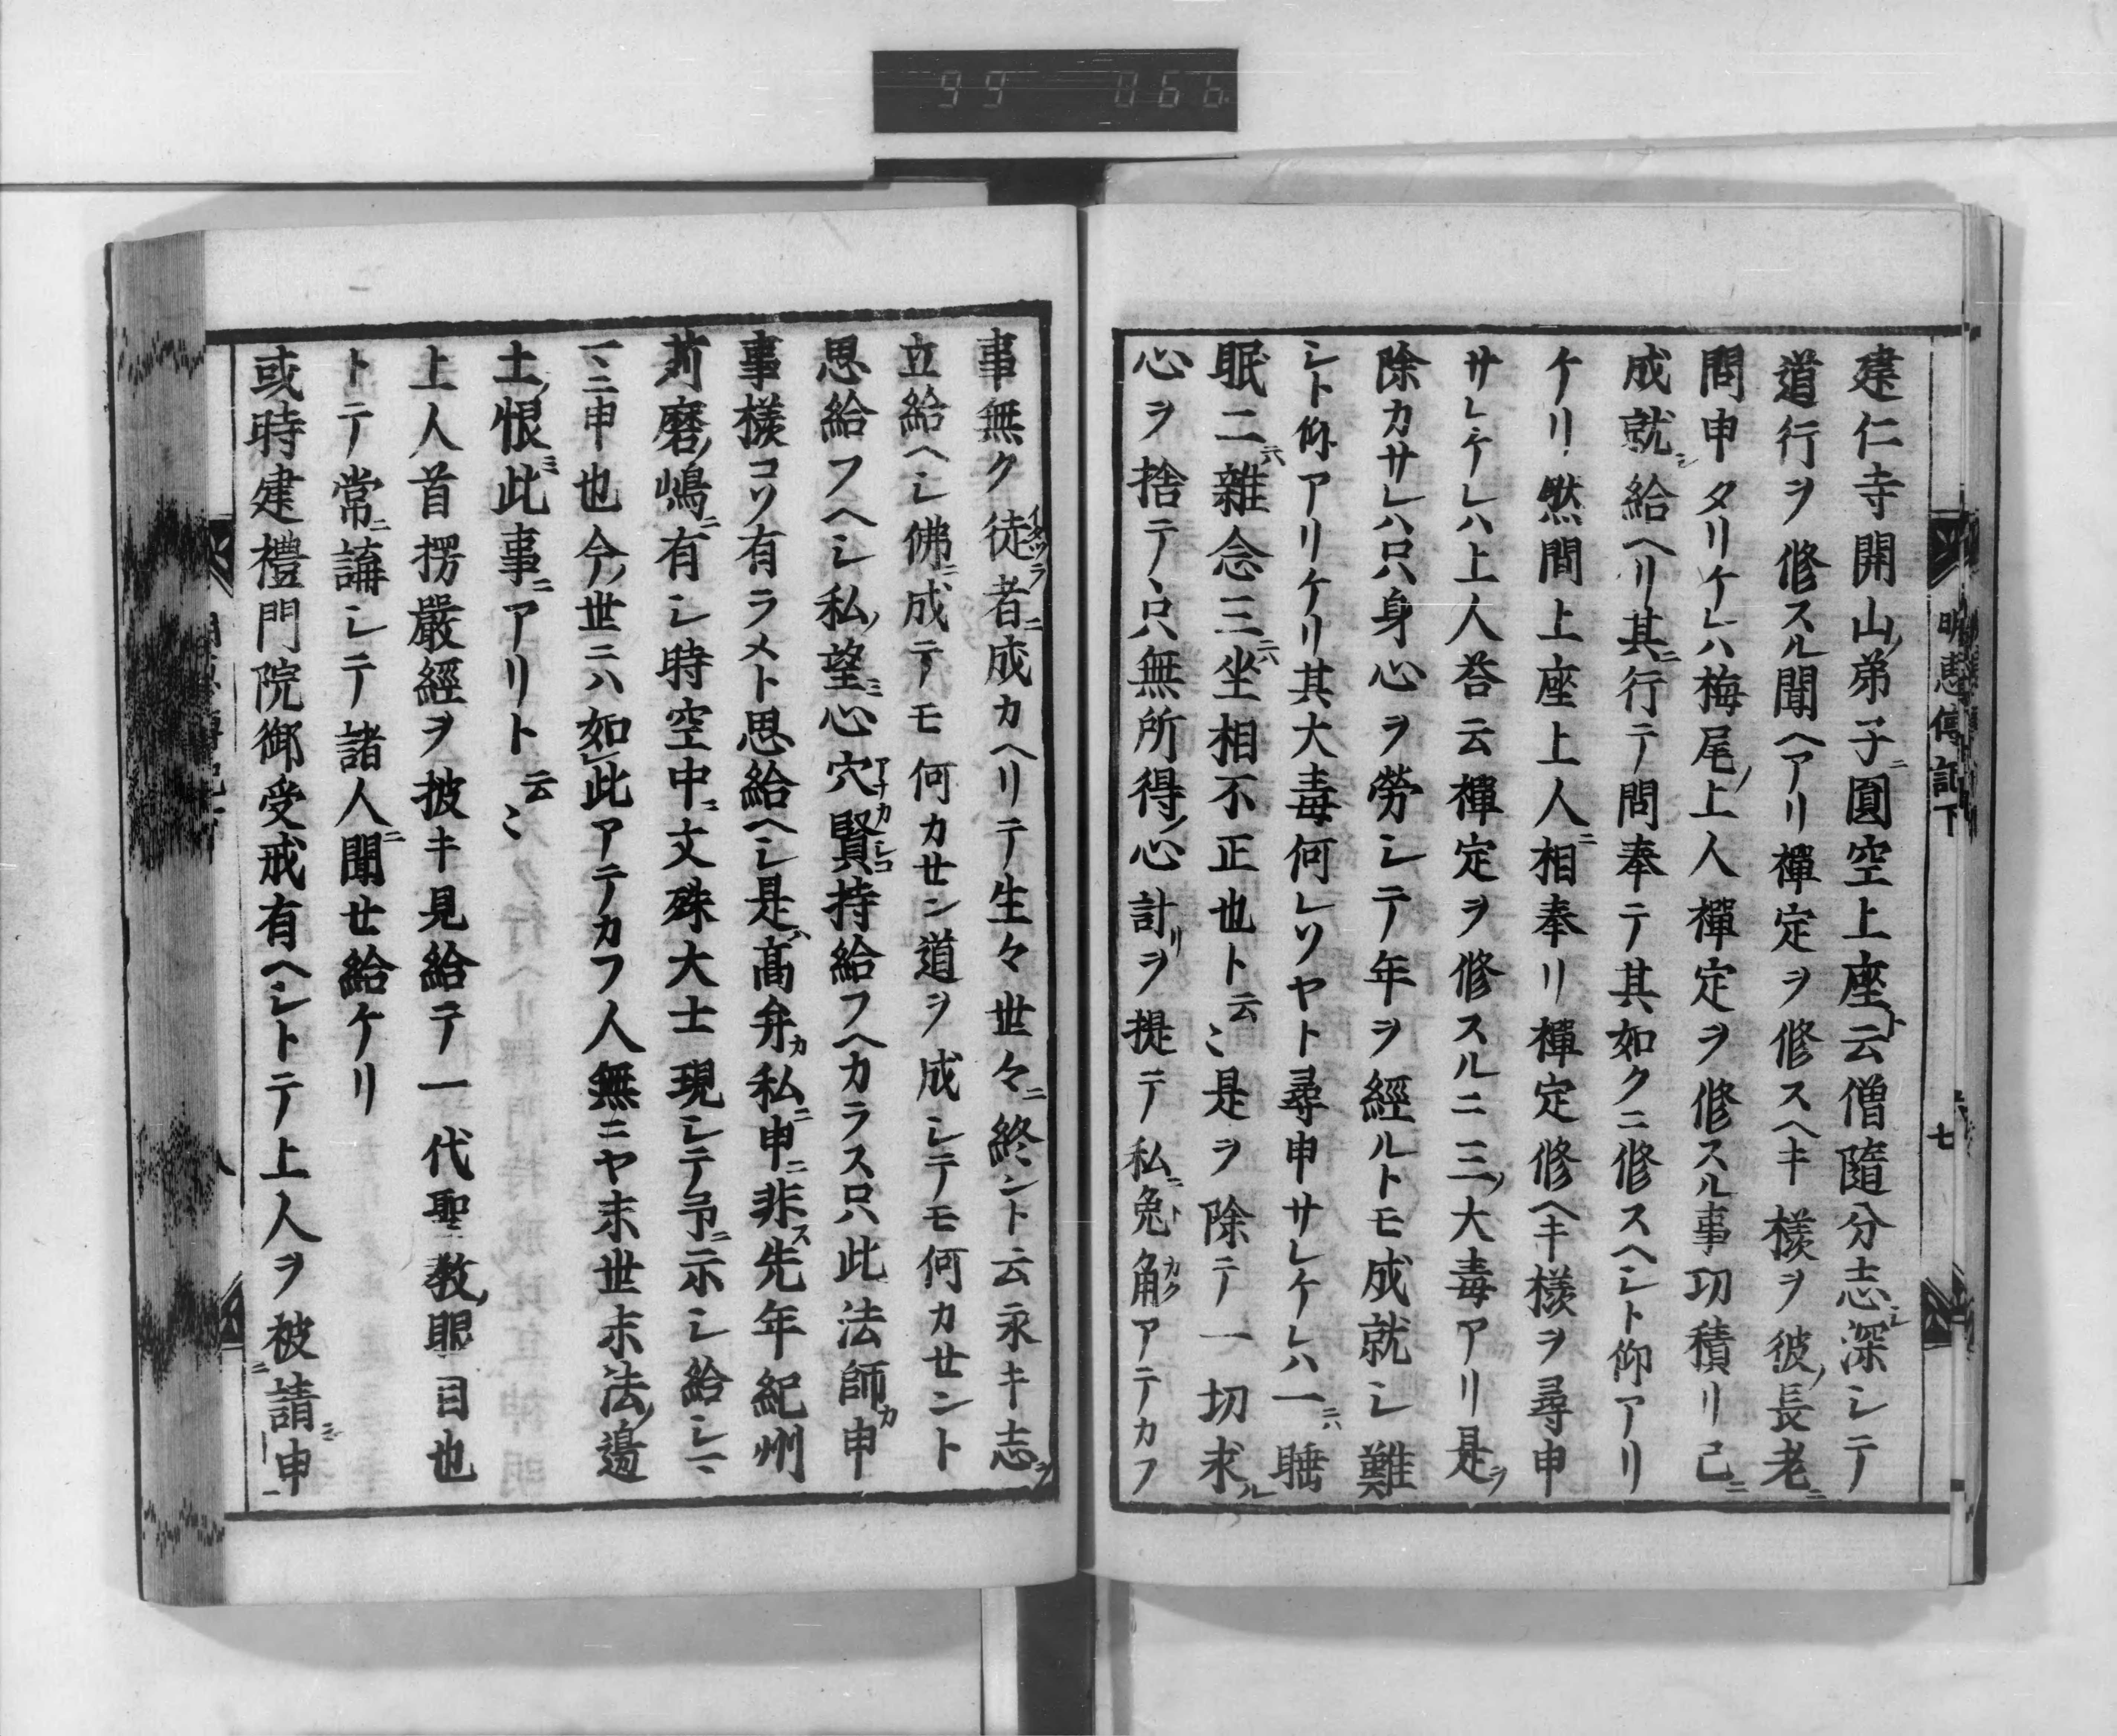 99 066
明惠傳記下
七
建仁寺開山ノ弟子ニ圓空上座ト云僧隨分志シ深シテ
道行ヲ修スル聞ヘアリ禪定ヲ修スヘキ樣ヲ彼ノ長老ニ
問申タリケレハ梅尾ノ上人禪定ヲ修スル事功積リ已ニ
成就シ給ヘリ其ニ行テ問奉テ其如クニ修スヘシト仰アリ
ケリ然間上座上人ニ相奉リ禪定修ヘキ樣ヲ尋申
サレケレハ上人答云禪定ヲ修スルニ三ノ大毒アリ是ヲ
除カサレハ只身心ヲ勞シテ年ヲ經ルトモ成就シ難
シト仰アリケリ其大毒何レソヤト尋申サレケレハ一ニハ睡
眠二ニハ雜念三ニハ坐相不正也ト云〻是ヲ除テ一切求ル
心ヲ捨テヽ只無所得ノ心計リヲ提テ私ニ兎ト角カクアテカフ
事無ク徒イタツラ者ニ成カヘリテ生々世々ニ終ント云永キ志ヲ
立給ヘシ佛ニ成テモ何カセン道ヲ成シテモ何カセント
思給フヘシ私ノ望ミ心穴アナ賢カシコ持給フヘカラス只此法師カ申
事樣コソ有ラメト思給ヘシ是ハ高弁カ私ニ申ニ非ス先年紀州
苅磨ノ嶋ニ有シ時空中ニ文殊大士現シテ予ニ示シ給シヽ
一ヽニ申也今ノ世ニハ如此アテカフ人無ニヤ末世末法ノ邉
土ノ恨ミ此事ニアリト云〻
上人首楞嚴經ヲ披キ見給テ一代聖教ノ眼目也
トテ常ニ誦シテ諸人ニ聞セ給ケリ
或時建禮門院御受戒有ヘシトテ上人ヲ被請シ申
八